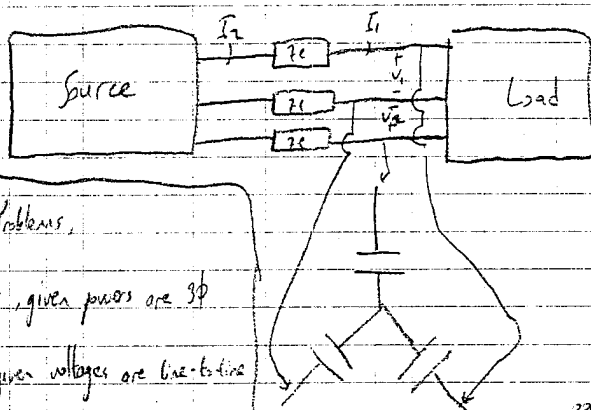 I₂ I₁
Source
Ze
Ze
Ze
+
V₁
-
Load
Problems,
, given powers are 3φ
given voltages are line-to-line